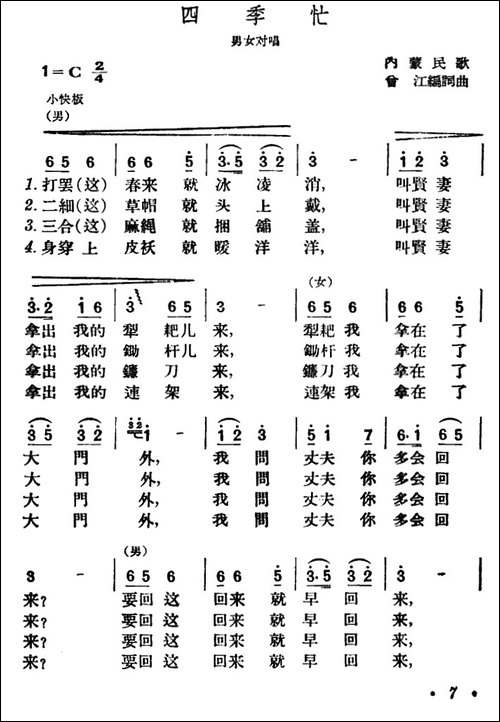 四季忙
男女对唱
1=C 2/4
内蒙民歌
曾江編詞曲
小快板
(男)
6 5 6 | 6 6 5 | 3·5 3 2 | 3 - | 1 2 3
1.打罢(这) 春来就冰凌消, 叫賢妻
2.二細(这) 草帽就头上戴, 叫賢妻
3.三合(这) 麻繩就捆鋪盖, 叫賢妻
4.身穿上皮袄就暖洋洋, 叫賢妻
(女)
3·2 1 6 | 3 6 5 | 3 - | 6 5 6 | 6 6 5
拿出我的犁耙儿来, 犁耙我拿在了
拿出我的鋤杆儿来, 鋤杆我拿在了
拿出我的鐮刀来, 鐮刀我拿在了
拿出我的連架来, 連架我拿在了
3 5 3 2 | 3 2 1 - | 1 2 3 | 5 1 7 | 6·1 6 5
大門外, 我問丈夫你多会回
大門外, 我問丈夫你多会回
大門外, 我問丈夫你多会回
大門外, 我問丈夫你多会回
(男)
3 - | 6 5 6 | 6 6 5 | 3·5 3 2 | 3 -
来? 要回这回来就早回来,
来? 要回这回来就早回来,
来? 要回这回来就早回来,
来? 要回这回来就早回来,
· 7 ·